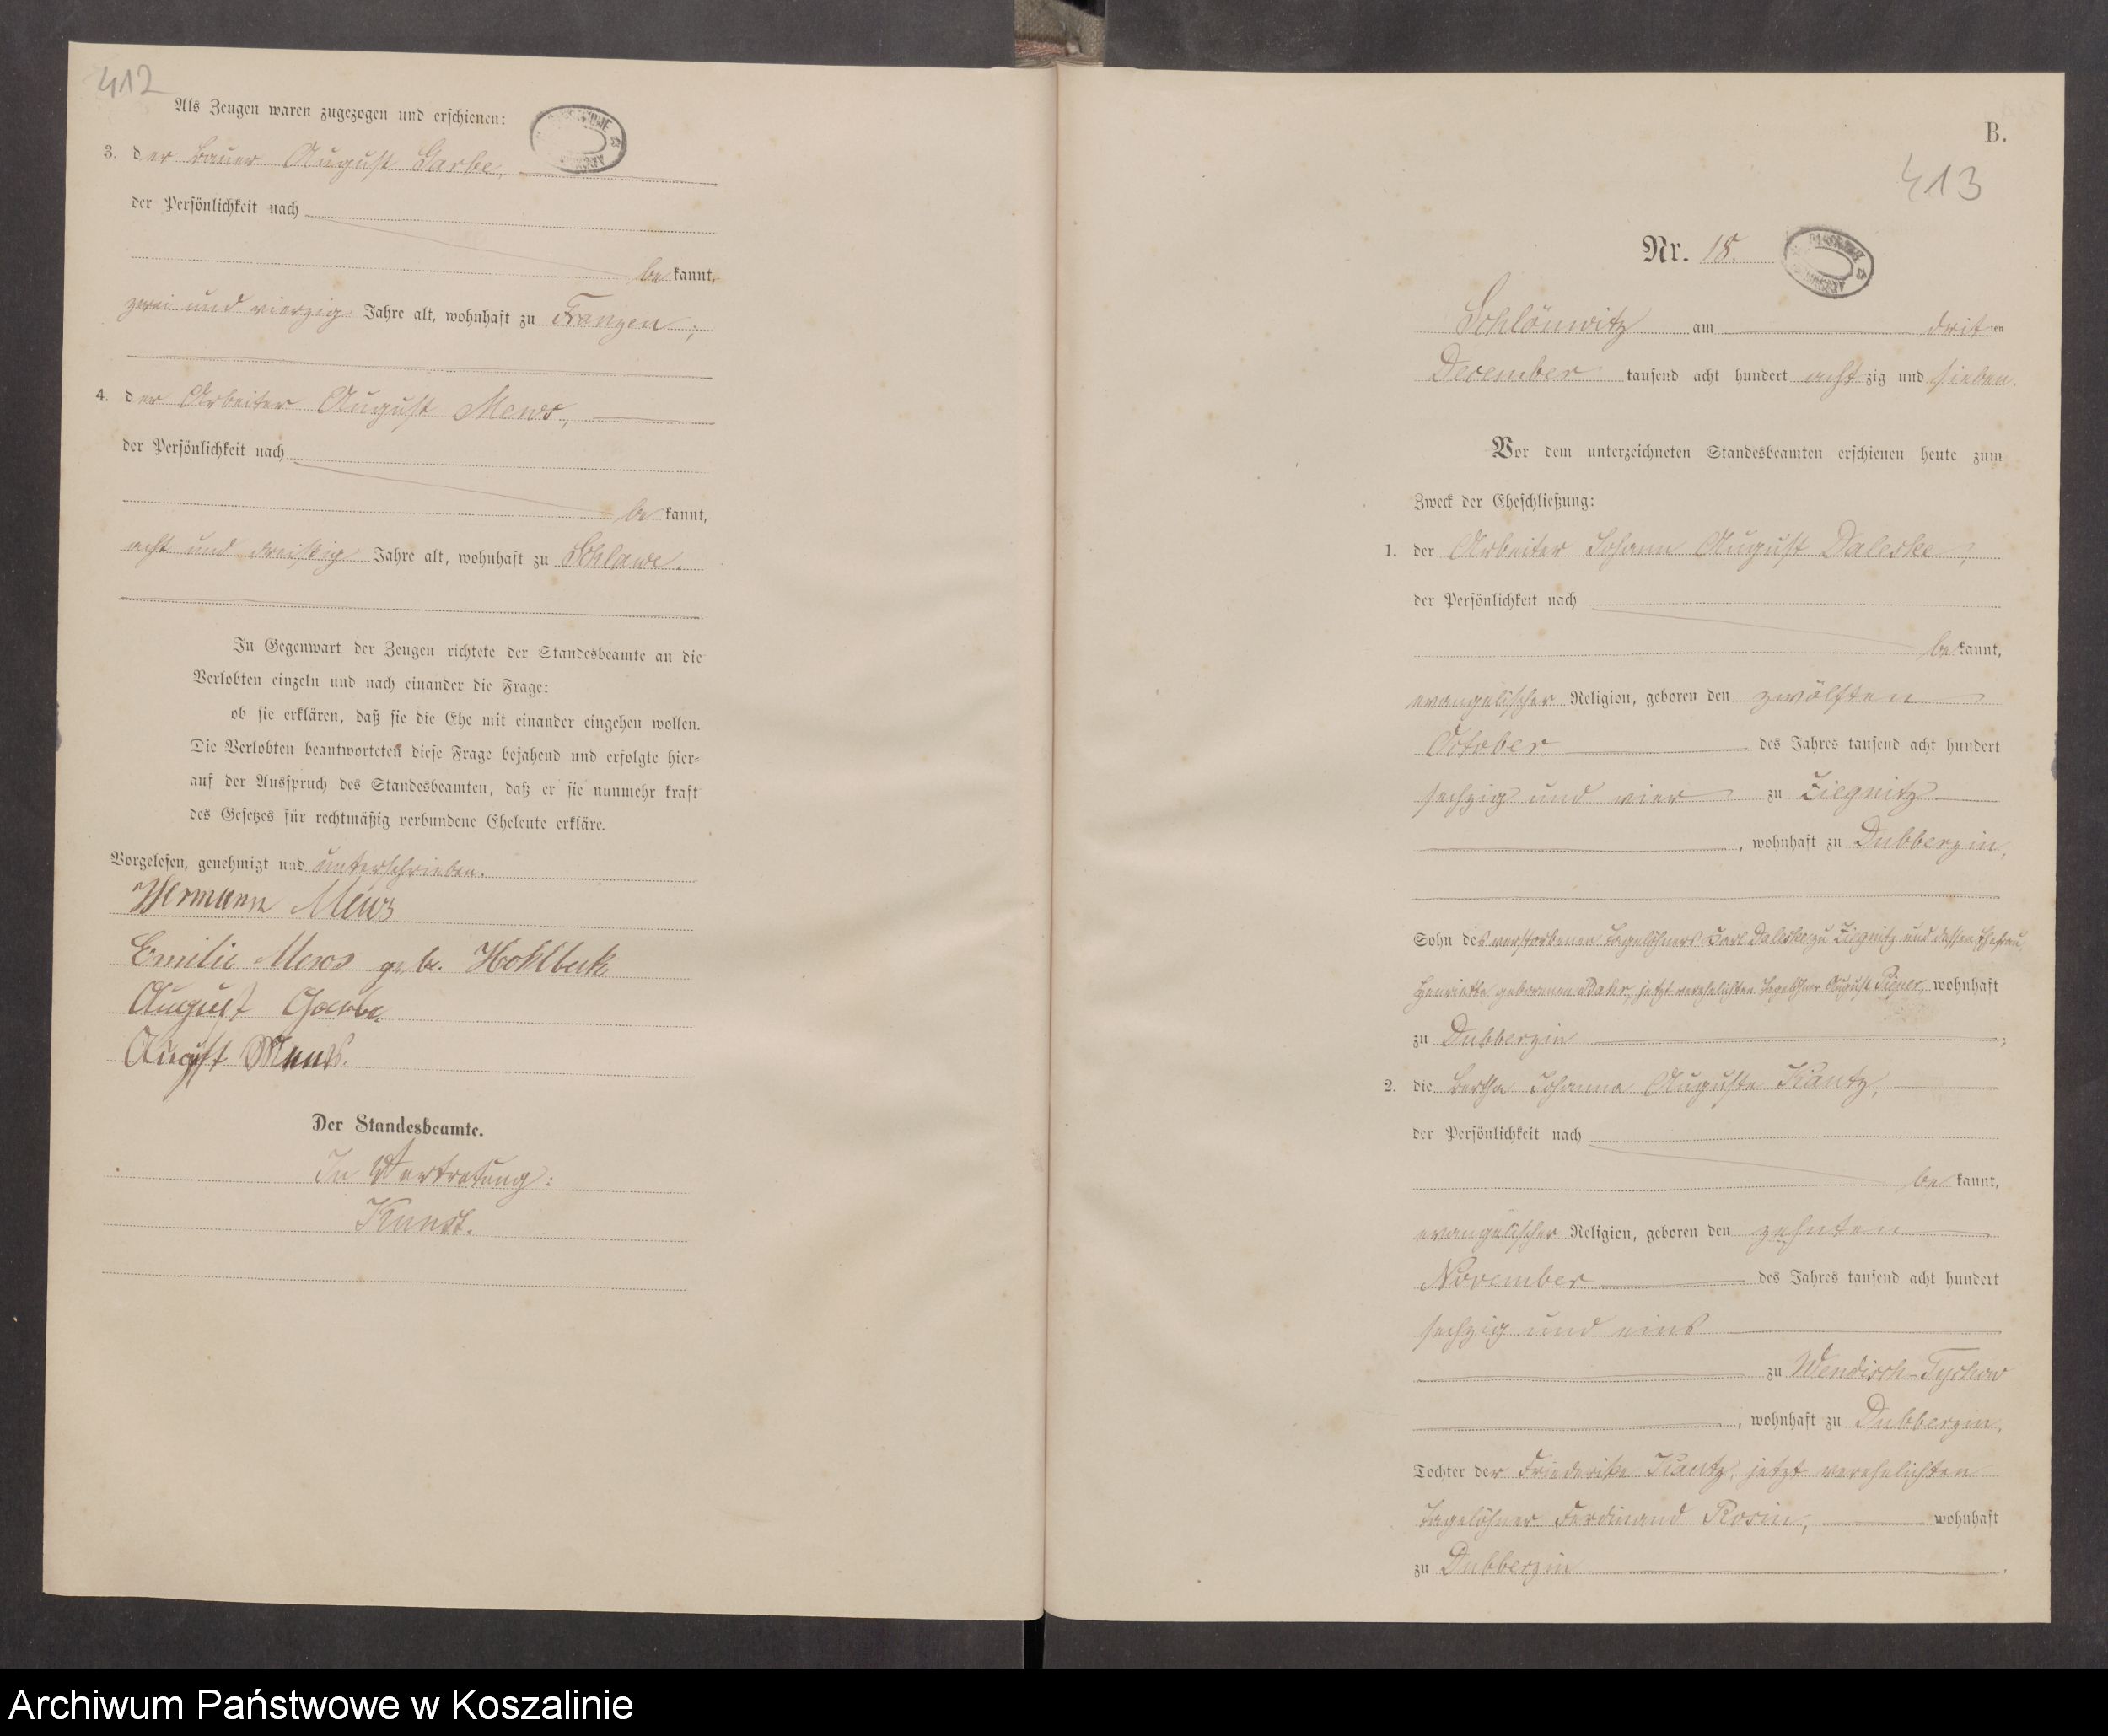 412
Als Zeugen waren zugezogen und erschienen:
3. der Bauer August Garbe,
der Persönlichkeit nach
bekannt,
zwei und vierzig Jahre alt, wohnhaft zu Franzen;
4. der Arbeiter August Mews,
der Persönlichkeit nach
bekannt,
acht und dreißig Jahre alt, wohnhaft zu Schlawe.
In Gegenwart der Zeugen richtete der Standesbeamte an die
Verlobten einzeln und nach einander die Frage:
ob sie erklären, daß sie die Ehe mit einander eingehen wollen.
Die Verlobten beantworteten diese Frage bejahend und erfolgte hier-
auf der Ausspruch des Standesbeamten, daß er sie nunmehr kraft
des Gesetzes für rechtmäßig verbundene Eheleute erkläre.
Vorgelesen, genehmigt und unterschrieben.
Hermann Mews
Emilie Mews geb. Hohlbeck
August Garbe
August Mews.
Der Standesbeamte.
In Vertretung:
Kunst.
B.
413
Nr. 18.
Schlönwitz am dritten
December tausend acht hundert achtzig und sieben.
Vor dem unterzeichneten Standesbeamten erschienen heute zum
Zweck der Eheschließung:
1. der Arbeiter Johann August Daleske,
der Persönlichkeit nach
bekannt,
evangelischer Religion, geboren den zwölften
October des Jahres tausend acht hundert
sechzig und vier zu Ziegnitz
, wohnhaft zu Dubberzin,
Sohn des verstorbenen Tagelöhners Karl Daleske zu Ziegnitz und dessen Ehefrau,
Henriette geborenen Bahr, jetzt verehelichten Tagelöhner August wohnhaft
zu Dubberzin;
2. die Bertha Johanna Auguste Kantz,
der Persönlichkeit nach
bekannt,
evangelischer Religion, geboren den zehnten
November des Jahres tausend acht hundert
sechzig und eins
zu Wendisch-Tychow
, wohnhaft zu Dubberzin,
Tochter der Friederike Kantz, jetzt verehelichten
Tagelöhner Ferdinand Rosin, wohnhaft
zu Dubberzin.
Archiwum Państwowe w Koszalinie